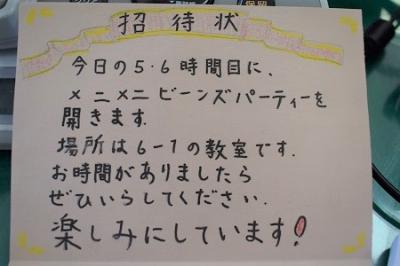 招待状
今日の5・6時間目に、
メニメニビーンズパーティーを
開きます.
場所は6-1の教室です.
お時間がありましたら
ぜひいらしてください.
楽しみにしています!